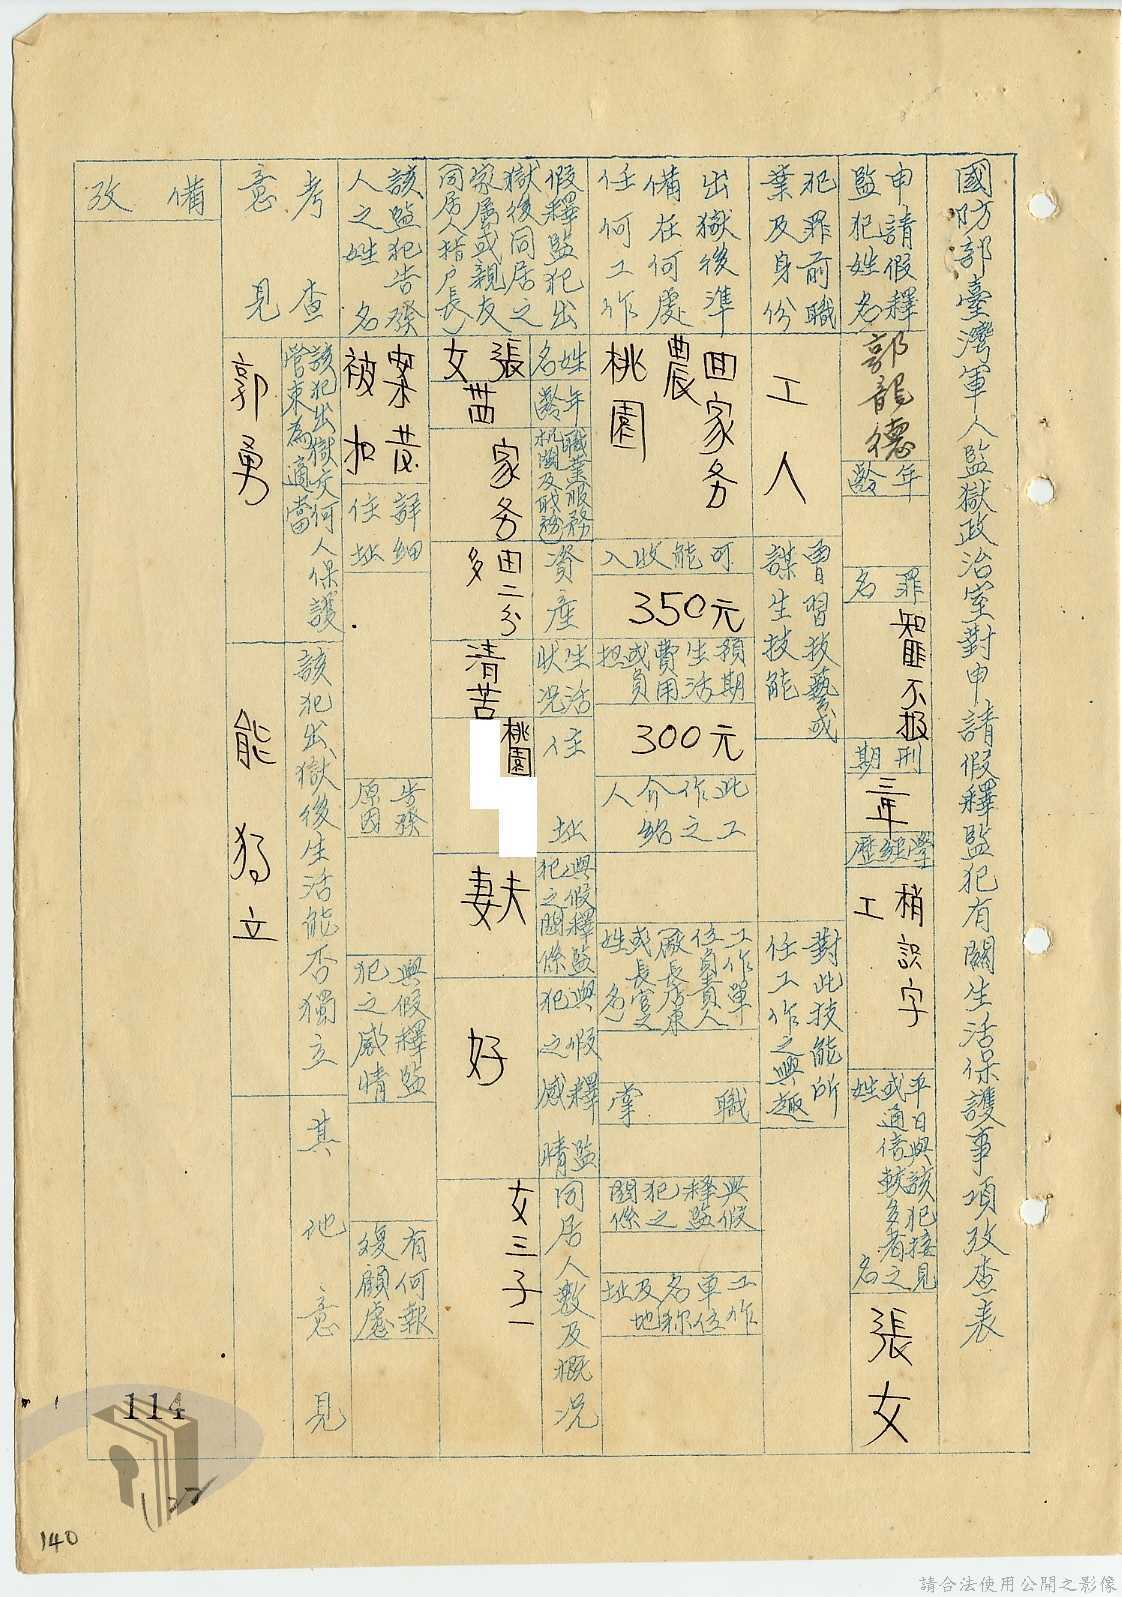 國防部臺灣軍人監獄政治室對申請假釋監犯有關生活保護事項攷查表
申請假釋
監犯姓名
郭龍德
年
齡
罪名
知匪不报
刑期
三年
學經歷
稍識字
工
平日與該犯接見
或通信較多者之
姓名
張女
犯罪前職
業及身份
工人
曾習技藝或
謀生技能
對此技能所
任工作之興趣
出獄後準
備在何處
任何工作
田家务
農
桃園
可能收入
350元
預期
生活
費用
或負
担
300元
此工
作之
介紹
人
工作單
位負責人
(廠長店東
或長官)之
姓名
職掌
與假
釋監
犯之
關係
工作
單位
名称
及地
址
假釋監犯出
獄後同居之
家屬或親友
(同居人指戶長)
姓名
張
茜
女
年
齡
職業服務
机關及職務
家务
資產
田二分
多
生活
狀况
清苦
住址
桃園
與假釋監
犯之關係
夫
妻
與假釋監
犯之感情
好
同居人數及概况
女三子一
該監犯告發
人之姓名
案黄
被扣
詳細
住址
告發
原因
與假釋監
犯之感情
有何報
復顧慮
考查
意見
該犯出獄交何人保護
管束為適當
郭勇
該犯出獄後生活能否獨立
能独立
其他意見
備攷
114
122
140
請合法使用公開之影像